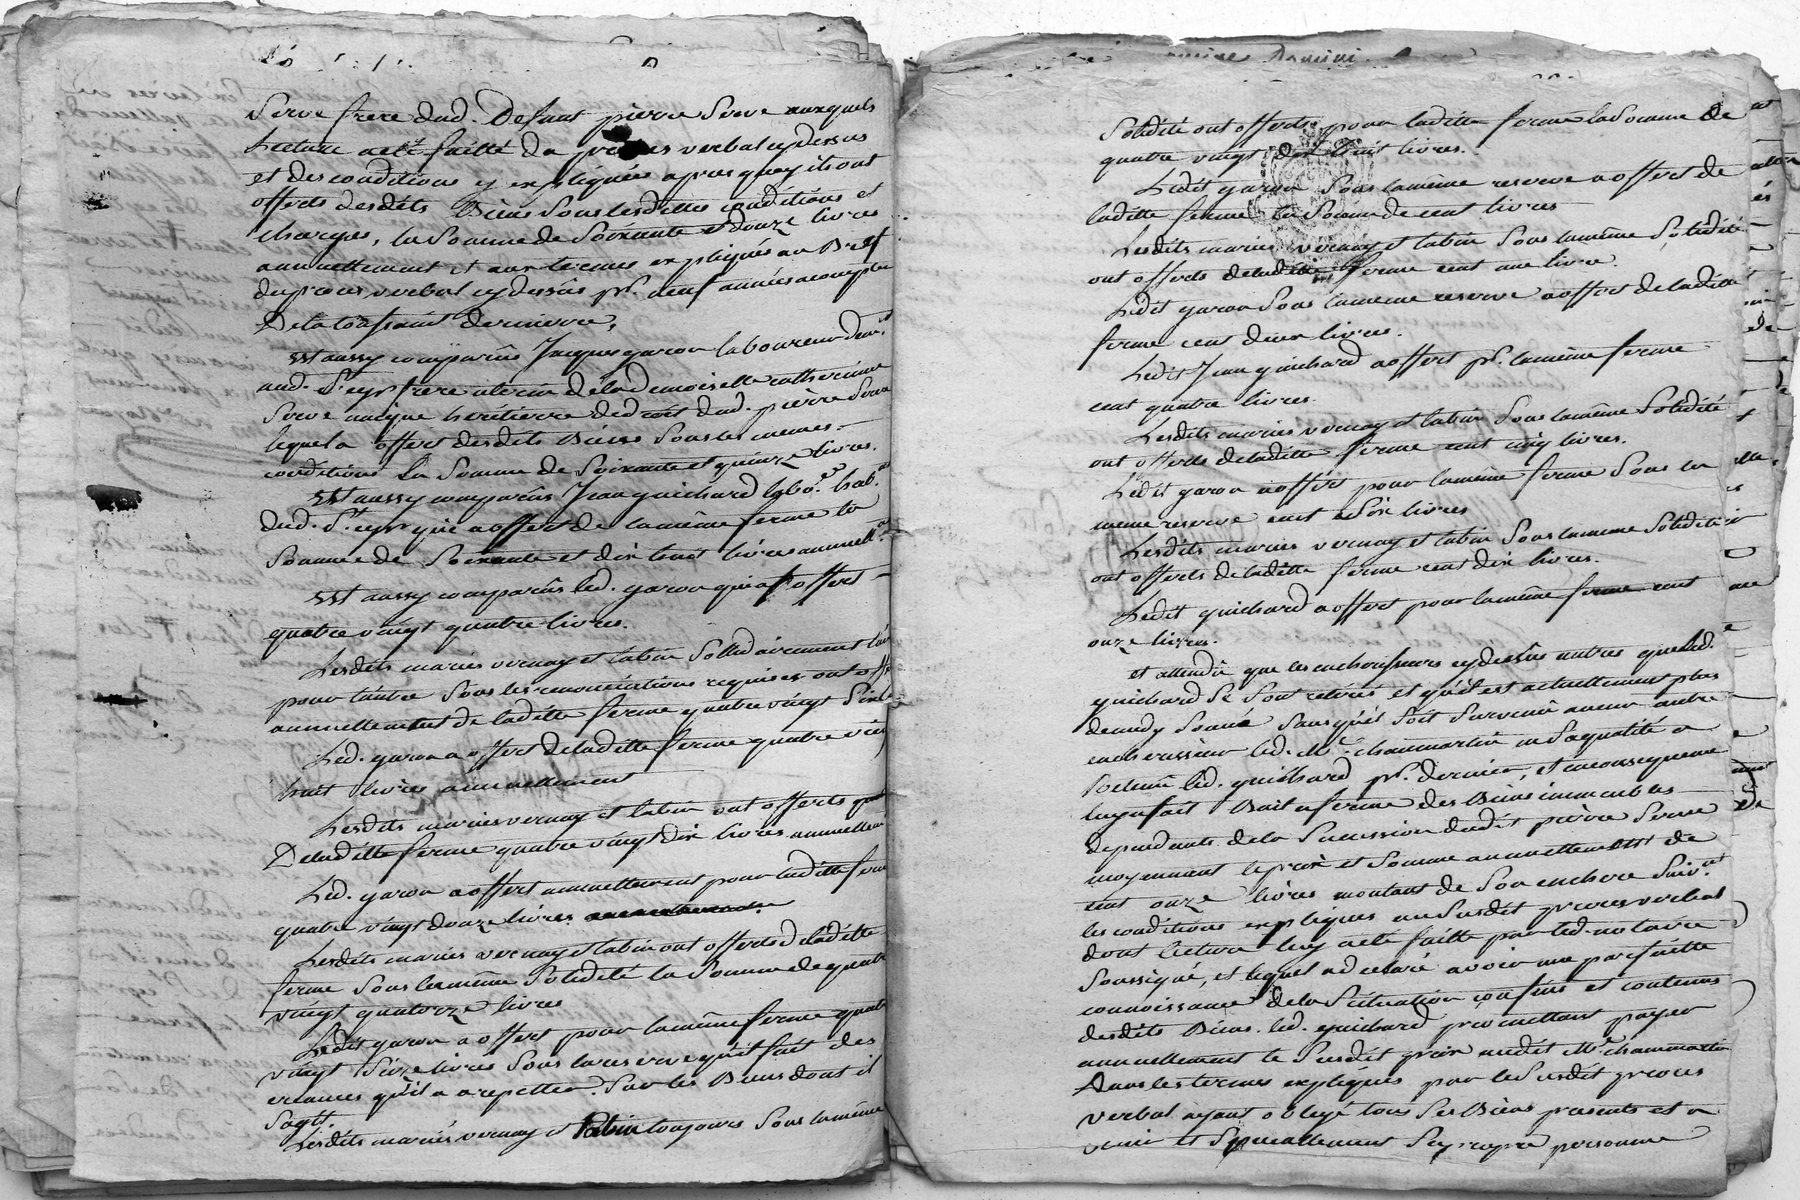 Serve frere dud. Defunt pierre Serve auxquels
Lecture a eté faitte du proces verbal cy dessus
et des conditions y expliquées apres quoy ils ont
offerts desdéts Biens Sous lesdettes conditions et
charges, la Somme de Soixante et douze livres
annuellement et aux termes expliqués au Bref
du proces verbal cy dessus pr. neuf années a compter
De la toussaint derniere,
Est aussy comparûs Jacques garon laboureur
aud. St. cyr frere uterin de la demoiselle catherinne
Serve uncque heritierre de droit dud. pierre Serve
lequel a offert desdéts Biens Sous les memes
conditions La Somme de Soixante et quinze livres.
Est aussy comparûs Jean guichard labor. hab.
dud. St. cyr qui a offert de la même ferme la
Somme de Soixante et dix huit livres annuellt.
Est aussy comparûs led. garon qui a offert
quatre vingt quatre livres.
Lesdéts mariés vernay et tabin Sollidairement l'un
pour l'autre Sous les renonciations requises ont
annuellement de ladette ferme quatre vingt
Led. garon a offert de ladette ferme quatre
huit livres annuellement
Lesdéts mariés vernay et tabin ont offerts
De ladette ferme quatre vingt dix livres annuellem
Led. garon a offert annuellement pour ladette ferm
quatre vingt douze livres
Lesdéts mariés vernay et tabin ont offerts de ladétte
ferme Sous la même Solidité la Somme de quatre
vingt quatorze livres
Ledét garon a offert pour la même ferme quatr
vingt Seize livres Sous la reserve qu'il fait des
creances qu'il a a repetter Sur les Biens dont il
Sagit.
Lesdéts mariés vernay et tabin toujours Sous la même
Solidité ont offerts pour ladétte ferme la Somme de
quatre vingt dix huit livres.
Ledét garon Sous la même reserve a offert de
ladétte ferme la Somme de cent livres
Lesdits mariés vernay et tabin Sous la même Solidité
ont offerts de ladétte ferme cent une livre.
Ledit garon Sous la meme reserve a offert de ladétte
ferme cent deux livres.
Ledit Jean guichard a offert pr. la même ferme
cent quatre livres.
Lesdéts mariés vernay et tabin Sous la même Solidité
ont offerts de ladétte ferme cent cinq livres.
Ledit garon a offert pour la même ferme Sous la
meme reserve cent Six livres
Lesdits mariés vernay et tabin Sous la meme Solidité
ont offerts de ladétte ferme cent dix livres.
Ledit guichard a offert pour la même ferme cent
onze livres.
et attendu que les encherisseurs cy dessûs autres que led.
guichard Se Sont retirés et qu'il est actuellement plus
de midy Sonné Sans qu'il Soit Survenû aucun autre
encherisseur led. Me. chaumartin en Sa qualité a
retenu led. guichard pr. dernier, et en consequence
luy a fait Bail a ferme des Biens immeubles
dependants de la Succession dudét pierre Serve
moyennant le prix et Somme annuellement de
cent onze livres montant de Son enchere Suivt.
les conditions expliqués au Susdét proces verbal
dont lecture luy a eté faitte par led. notaire
Soussigné, et lequel a declaré avoir une parfaitte
connoissance de la Scituation confins et contenus
desdéts Biens. led. guichard promettant payer
annuellement le Susdét prix audét Me. chaumartin
Dans les termes expliqués par le Susdét proces
verbal ayant obligé tous Ses Biens presents et a
venir et Specialement Sa propre personne